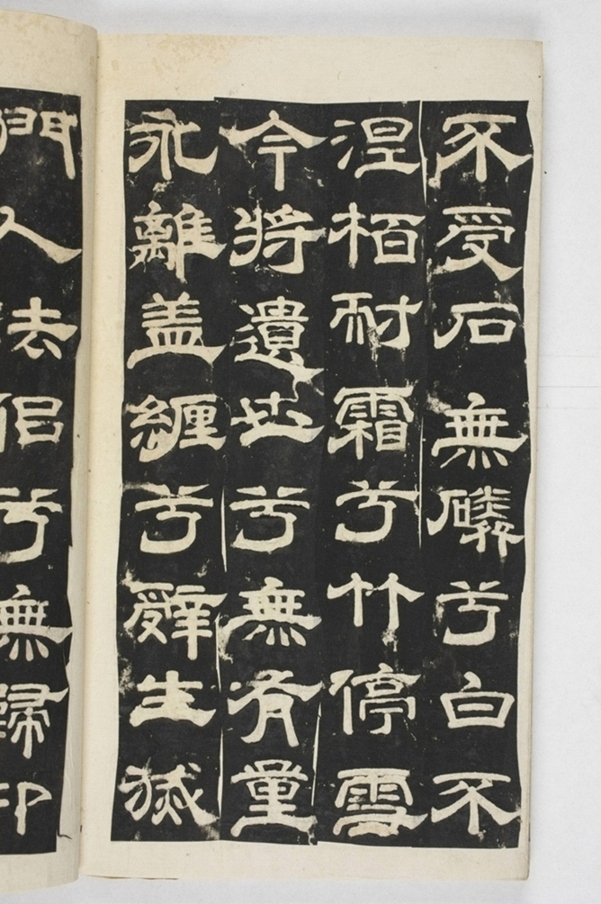 不受石無磷兮白不
涅栢耐霜兮竹停雪
今將遺世兮無有量
永離盖纏兮辭生滅
門人法侶兮無歸仰